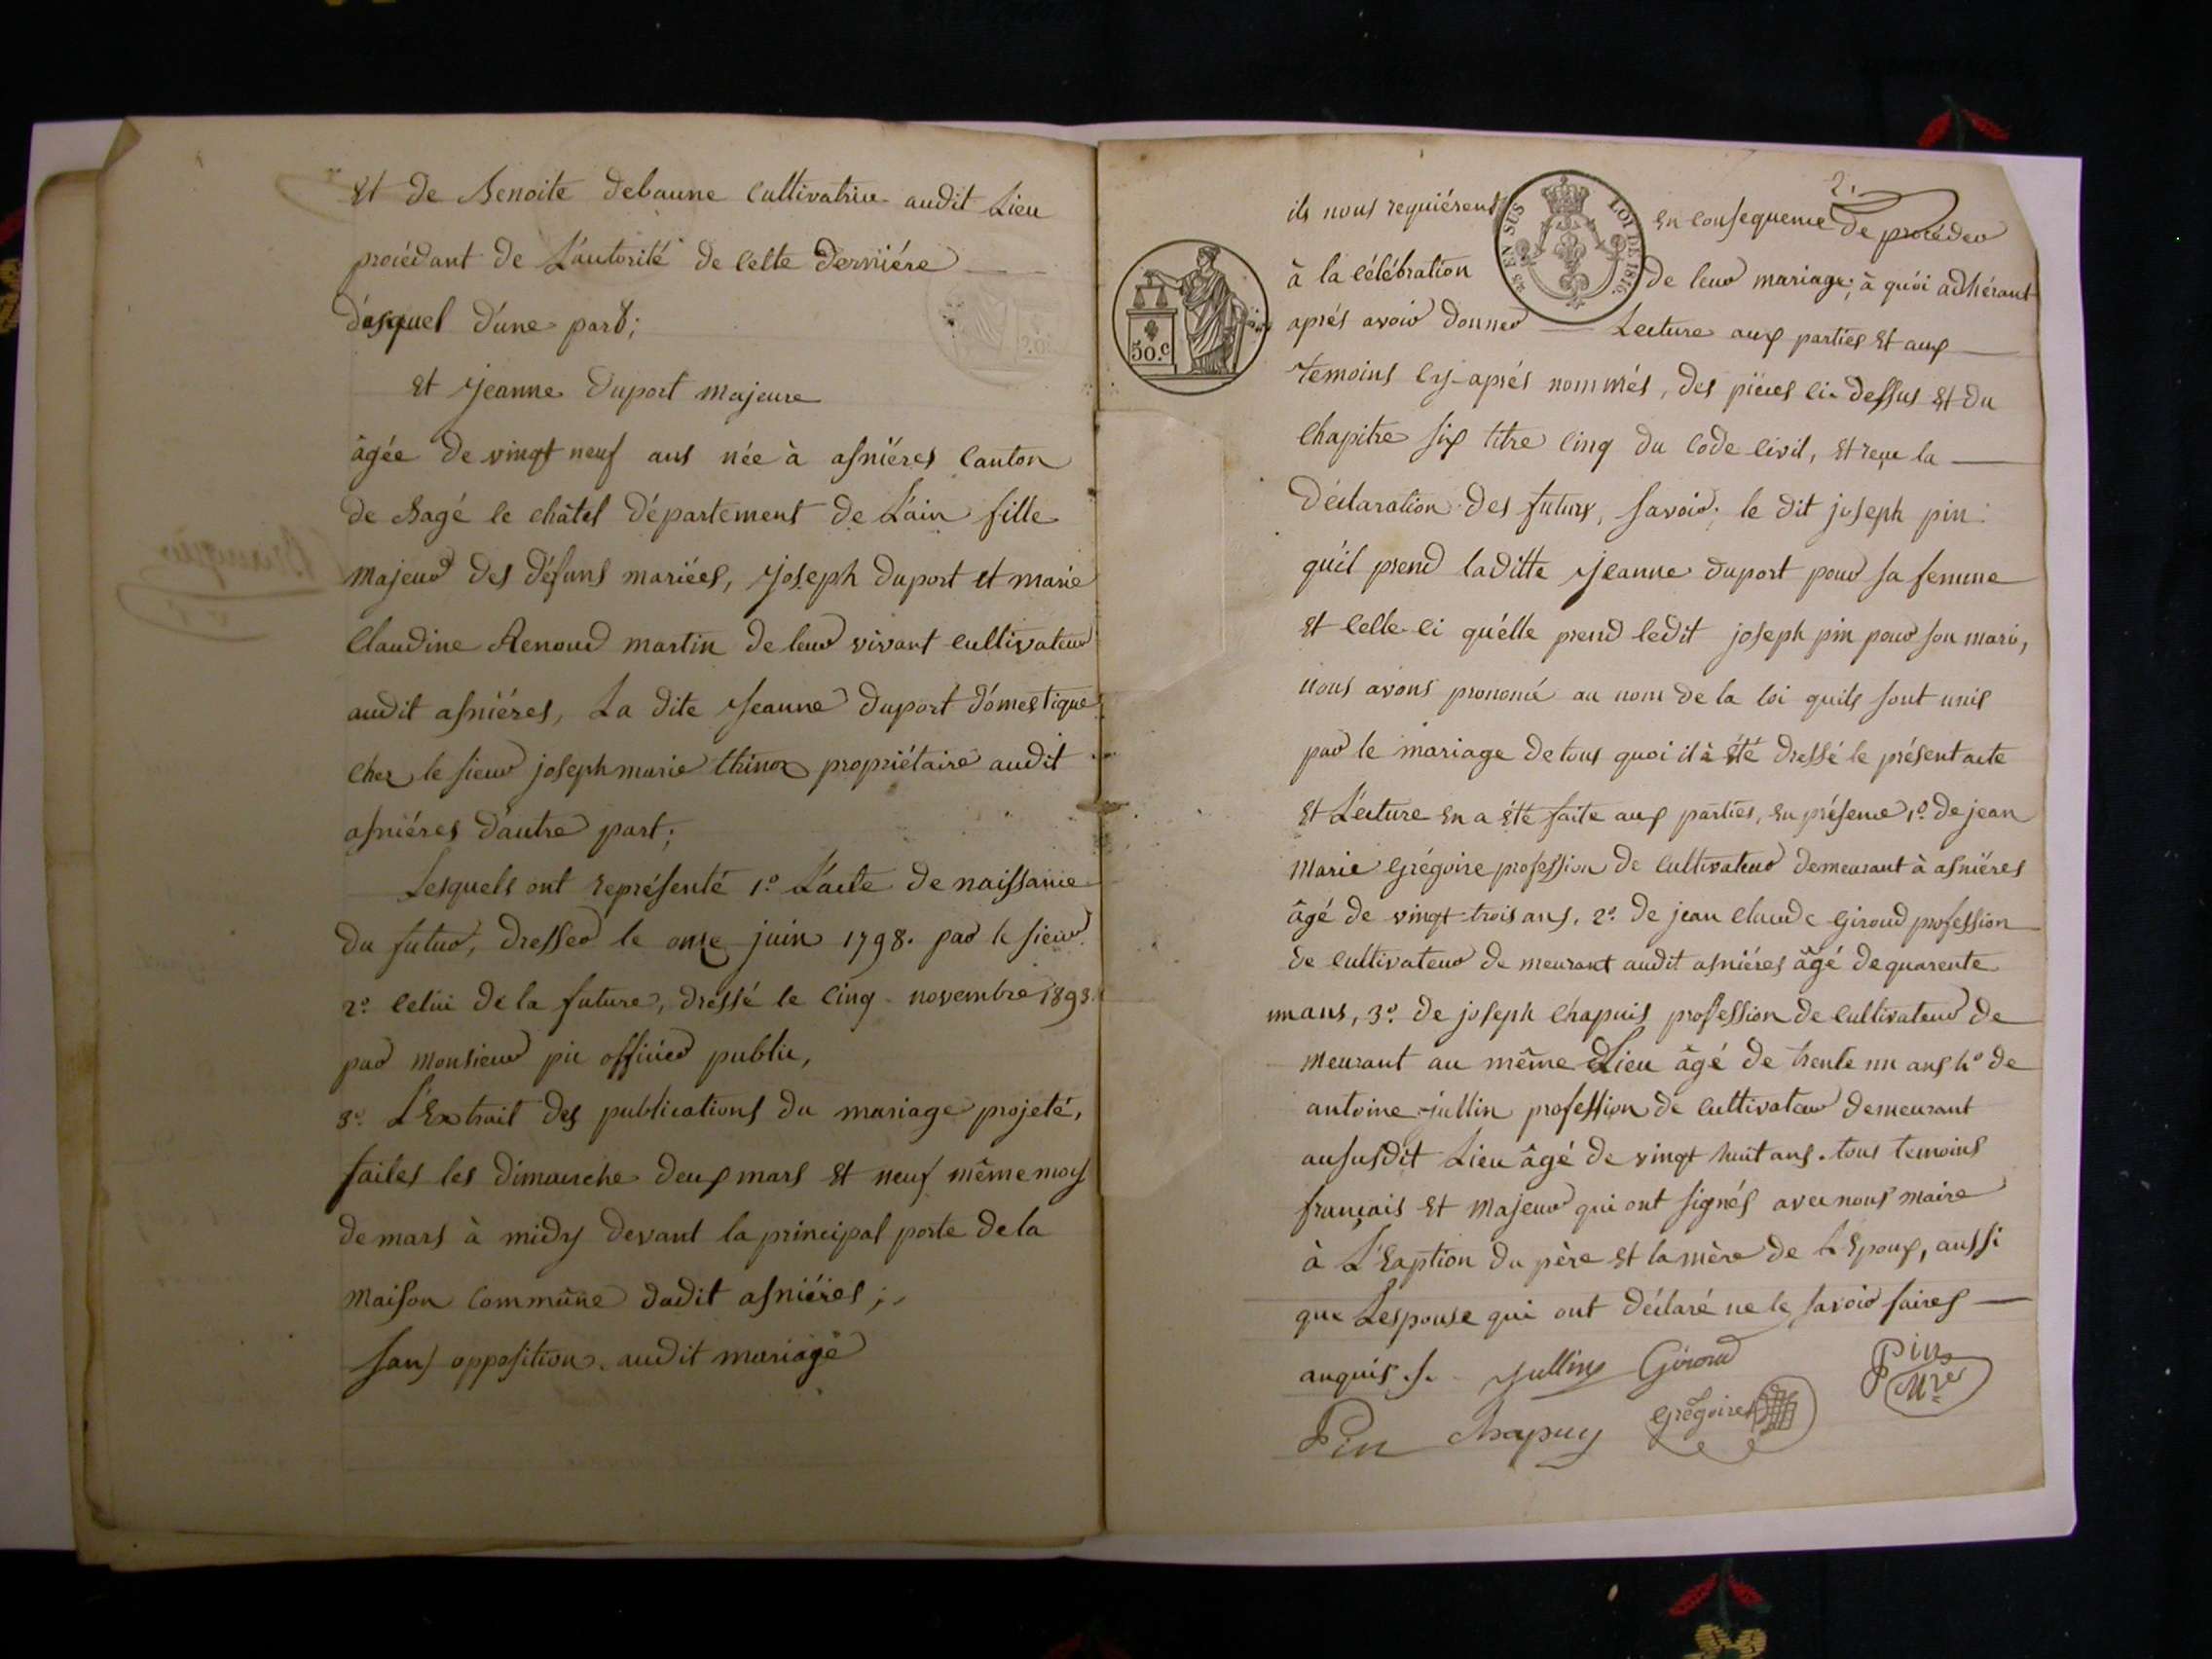 Et de Benoite debaune cultivatrice audit Lieu
procédant de L'autorité de cette dérniére
d'asquel d'une part;
et Jeanne Duport majeure
âgée de vingt neuf ans née à asniéres canton
de Bagé le châtel département de L'ain fille
majeur des défuns mariées, Joseph Duport et marie
Claudine Renoud martin de leur vivant cultivateur
audit asniéres, La dite Jeanne Duport domestique
chez le sieur joseph marie propriétaire audit
asniéres d'autre part;
Lesquels ont représenté 1.o L'acte de naissance
du futur, dresser le onze juin 1798. par le sieur
2.o celui de la future, dréssé le cinq novembre 1893.
par monsieur pic officier public,
3.o L'Extrait des publications du mariage projeté,
faites les dimanche deux mars Et neuf même moys
de mars à midy devant la principal porte de la
maison commune dudit asniéres;
sans opposition audit mariage
2.
ils nous requiérent En consequence de procéder
à la célébration de leur mariage; à quoi adhérant
EN SUS LOI DE 1816.
50.c
aprés avoir donner Lecture aux parties Et aux
témoins cy-aprés nommés, des piéces ci-dessus Et du
chapitre six titre cinq du Code Civil, Et reçu la
Déclaration des futurs, savoir; le dit joseph pin
qu'il prend laditte Jeanne duport pour sa femme
Et celle-ci qu'elle prend ledit joseph pin pour son mari,
nous avons prononcé au nom de la loi quils sont unis
par le mariage de tous quoi il à été dressé le présent acte
Et Lecture En a été faite aux parties, En présence 1.o de jean
Marie Grégoire profession de cultivateur demeurant à asniéres
âgé de vingt-trois ans, 2.o de jean claude Giroud profession
de cultivateur de meurant audit asniéres âgé de quarente
un ans, 3.o de joseph Chapuis profession de cultivateur de
meurant au même Lieu âgé de trente un ans 4.o de
antoine jullin profession de cultivateur demeurant
au susdit Lieu âgé de vingt huit ans. tous temoins
français Et majeur qui ont signés avec nous maire
à L'Exption du père Et la mère de L'Epoux, aussi
que Lespouse qui ont déclaré ne le savoir faires
anquis. s. Jullin Giroud Pin
Mre
Pin Chapuy Grégoire